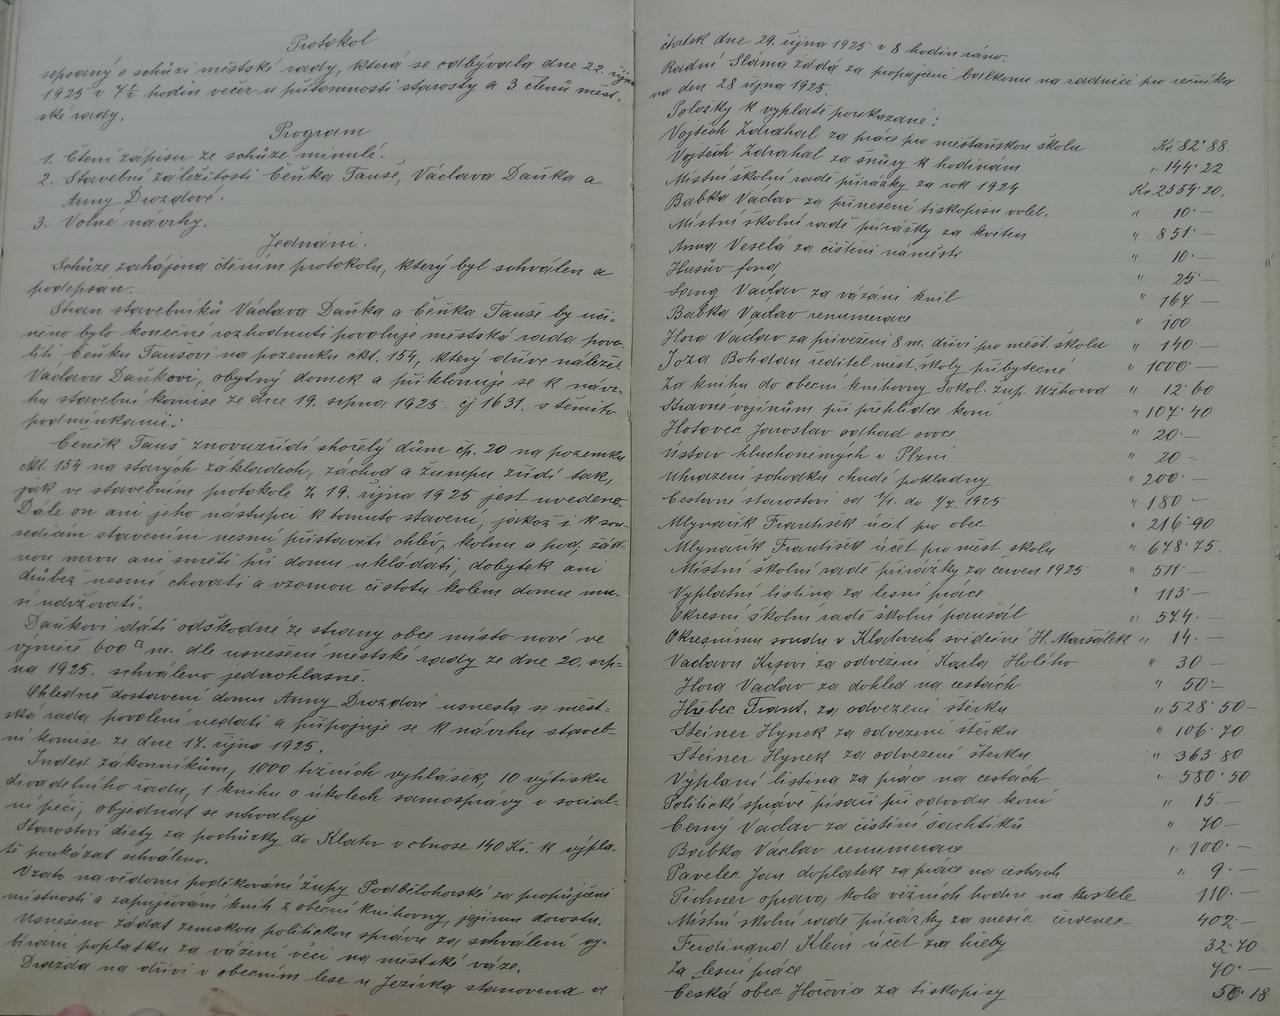 Protokol
sepsaný o schůzi městské rady, která se odbývala dne 22. října
1925 v 7½ hodin večer u přítomnosti starosty a 3 členů měst-
ské rady.
Program
1. Čtení zápisu ze schůze minulé.
2. Stavební záležitosti Čeňka Tauše, Václava Daňka a
Anny Drozdové.
3. Volné návrhy.
Jednání.
Schůze zahájena čtením protokolu, který byl schválen a
podepsán.
Stran stavebníků Václava Daňka a Čeňka Tauše by uči-
něno bylo konečné rozhodnutí povoluje městská rada povo-
liti Čeňku Taušovi na pozemku čkt. 154, který dříve náležel
Václavu Daňkovi, obytný domek a přikloňuje se k návr-
hu stavební komise ze dne 19. srpna 1925 čj 1631. s těmito
podmínkami:
Čeněk Tauš znovuzřídí shořelý dům čp. 20 na pozemku
čkt. 154 na starých základech, záchod a žumpu zřídí tak,
jak ve stavebním protokole z 19. října 1925 jest uvedeno.
Dále on ani jeho nástupci k tomuto stavení, jakož i k sou-
sedícím stavením nesmí přistavěti chlév, kolnu a pod; žád-
nou mrvu ani smětí při domu ukládati, dobytek ani
drůbež nesmí chovati a vzornou čistotu kolem domu mu-
sí udržovati.
Daňkovi dáti odškodné ze strany obce místo nové ve
výměře 600 □ m. dle usnešení městské rady ze dne 20. srp-
na 1925. schváleno jednohlasně.
Ohledně dostavení domu Anny Drozdové usnesla se měst-
ská rada povolení nedati a připojuje se k návrhu staveb-
ní komise ze dne 17. října 1925.
Index zákonníkům, 1000 tižních vyhlášek, 10 výtisku
divadelního řadu, 1 knihu o úkolech samosprávy v sociál-
ní péči, objednat se schvaluje
Starostovi diety za pochůzky do Klatov v obnose 140 Kč. k výpla-
tě poukázat schváleno.
Vzato na vědomí poděkování župy Podbělohorské za propůjčení
místnosti a zapůjčování knih z obecní knihovny, jejímu dorostu.
Usneseno žádat zemskou politickou správu za schválení vy-
bírání poplatku za vážení věcí na městské váze.
Dražba na dříví v obecním lese u Jezírka stanovena ve
čtvrtek dne 29. října 1925 v 8 hodin ráno.
Radní Sláma žádá za propůjčení balkonu na radnici pro řečníka
na den 28 října 1925.
Položky k výplatě poukázané:
Vojtěch Zdrahal za práce pro měšťanskou školu Kč. 82·88.
Vojtěch Zdrahal za šňůry k hodinám " 144·22
Místní školní radě přirážky za rok 1924 Kč 2554·20.
Babka Václav za přinesení tiskopisu voleb. " 10·—
Místní školní radě přirážky za květen " 851·—
Anna Veselá za čištění náměstí " 10·—
Husův fond " 25·—
Lang Václav za vázání knih " 164 —
Babka Václav renumerace " 100
Hora Václav za přivezení 8 m. dříví pro měst. školu " 140·—
Joza Bohdan ředitel měst. školy přibytečné " 1000·—
Za knihu do obecní knihovny Sokol. žup. Užhorod " 12·60
Stravné vojínům při přehlídce koní " 107·40
Hotovec Jaroslav odhad ovoce " 20·—
Ústav hluchoněmých v Plzni " 20 -
Uhrazení schodku chudé pokladny " 200·—
Cestovné starostovi od 1/1. do 1/7. 1925 " 180 —
Mlynařík František účet pro obec " 216·90
Mlynařík František účet pro měst. školu " 678·75.
Místní školní radě přirážky za červen 1925 " 511·—
Výplatní listina za lesní práce " 113·—
Okresní školní radě školní paušál " 574·—
Okresnímu soudu v Klatovech svědečné H. Maršálek " 14·—
Václavu Krsovi za odvežení Karla Holého " 30 —
Hora Václav za dohled na cestách " 50·—
Hřebec Frant. za odvezení štěrku " 528·50 —
Steiner Hynek za odvezení štěrku " 106·70
Steiner Hynek za odvezení štěrku " 363·80
Výplaní listina za práce na cestách " 580·50
Politické správě písaři při odvodu koní " 15·—
Černý Václav za čistění šachtiků " 70 —
Babka Václav renumerace " 100·—
Pavelec Jan doplatek za práce na cestách " 9·—
Pichner oprava kola věžních hodin na kostele 110·—
Místní školní radě přirážky za měsíc červenec 402·—
Ferdinand Klein účet za hřeby 32·70
Za lesní práce 40·—
Česká obec Hořovice za tiskopisy 50·18